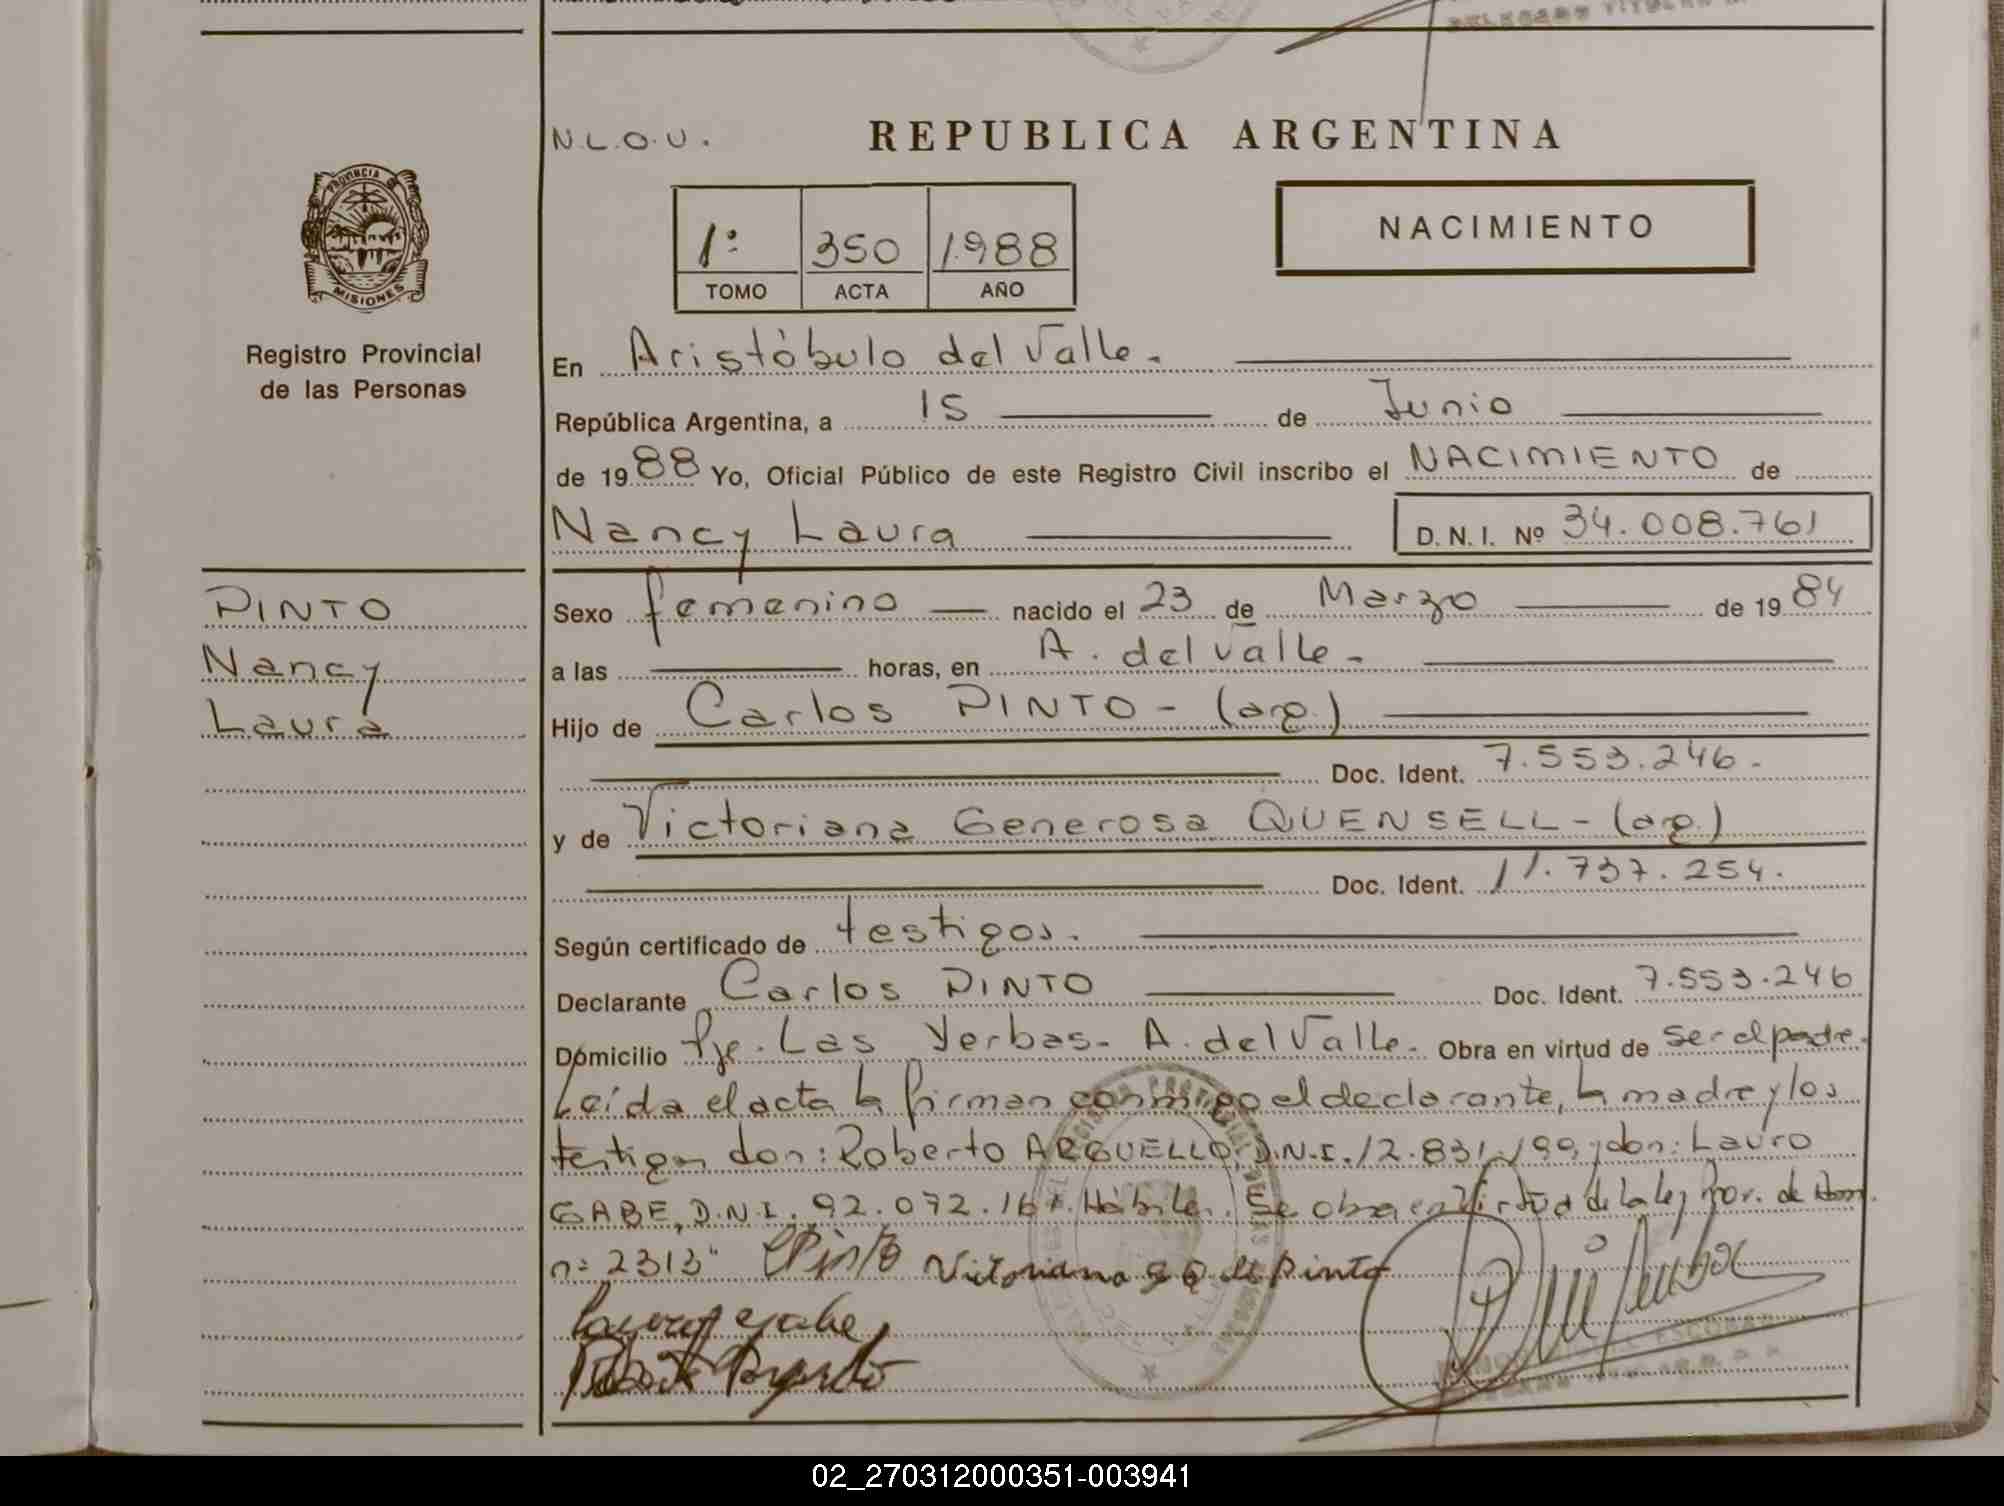 N.L.O.U.
REPUBLICA ARGENTINA
PROVINCIA
MISIONES
1º 350 1.988
TOMO ACTA AÑO
NACIMIENTO
Registro Provincial
de las Personas
En Aristóbulo del Valle.
República Argentina, a 15 de Junio
de 1988 Yo, Oficial Público de este Registro Civil inscribo el NACIMIENTO de
Nancy Laura D.N.I. Nº 34.008.761
PINTO
Nancy
Laura
Sexo femenino nacido el 23 de Marzo de 1984
a las horas, en A. del Valle.
Hijo de Carlos PINTO - (arg.)
Doc. Ident. 7.553.246.
y de Victoriana Generosa QUENSELL - (arg.)
Doc. Ident. 11.737.254.
Según certificado de testigos.
Declarante Carlos PINTO Doc. Ident. 7.553.246
Domicilio Pje. Las Yerbas- A. del Valle. Obra en virtud de ser el padre.
Leída el acta la firman conmigo el declarante, la madre y los
testigos don: Roberto ARGUELLO, D.N.I. 12.831.199, y don: Lauro
GABE, D.N.I. 92.072. Hábiles. Se obra en Virtud de la ley Prov. de
nº 2313" CPinto Victoriana G Q de Pinto
ESCOBAR
02_270312000351-003941